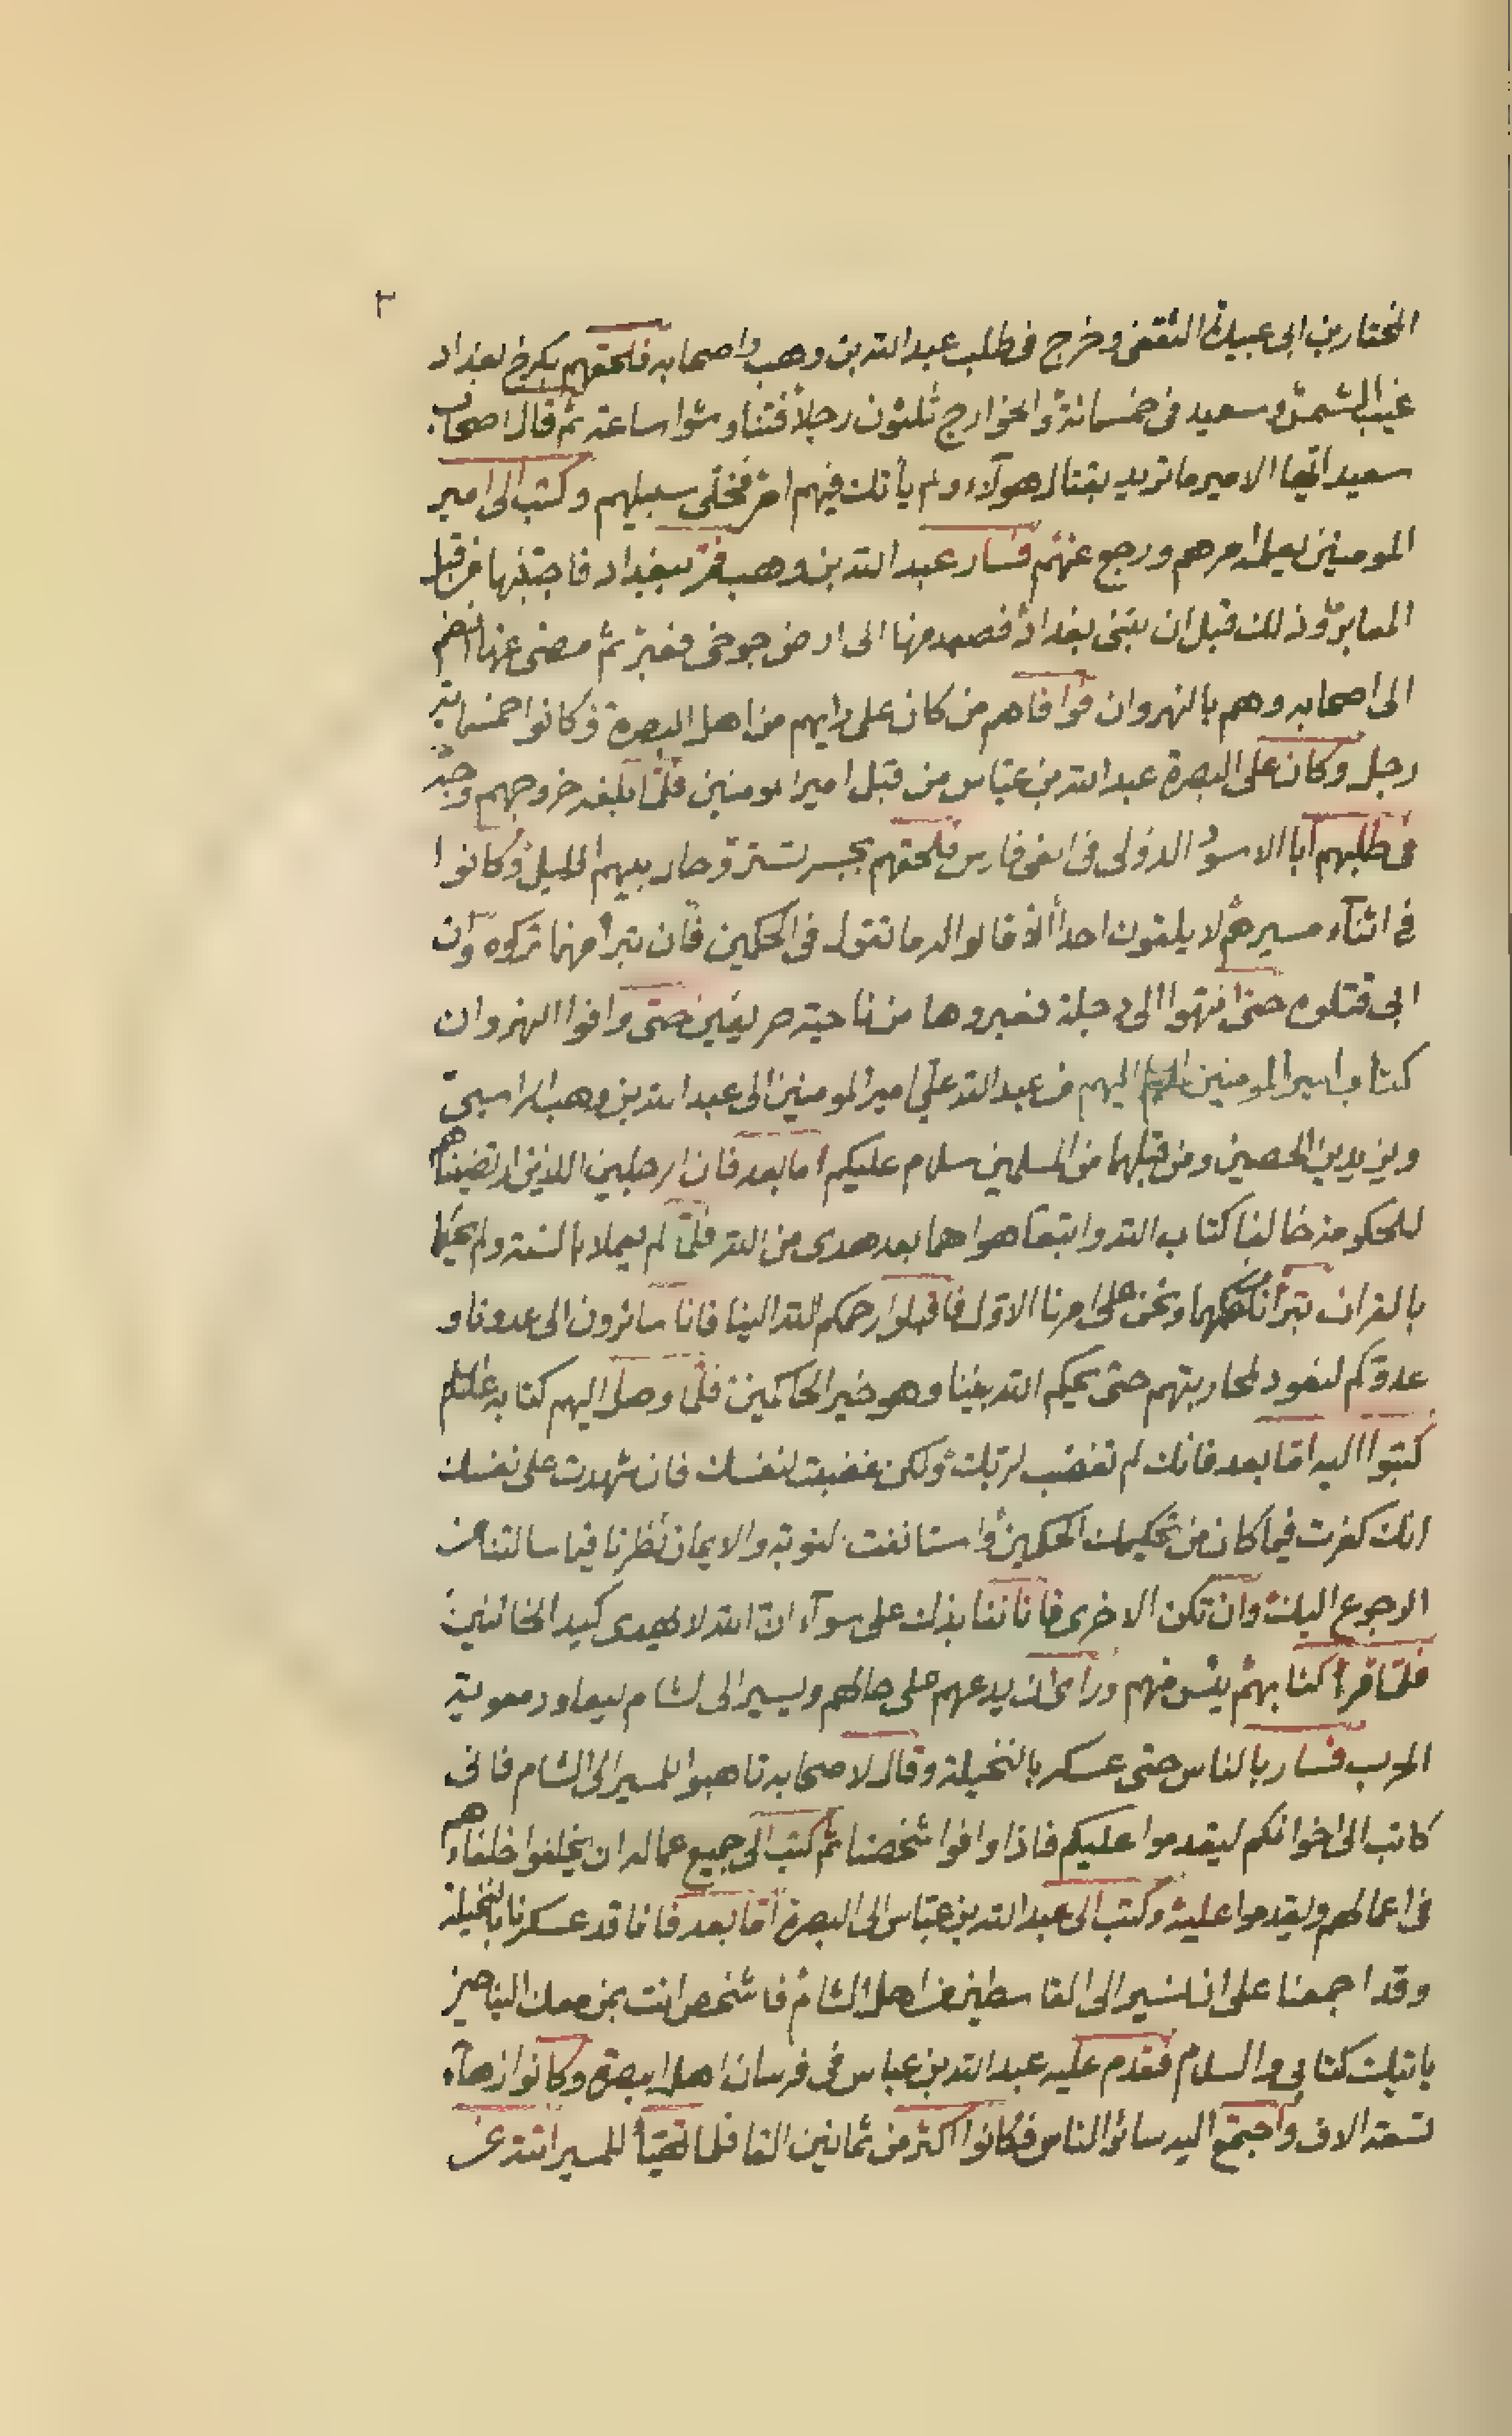 ٣
المختار بن ابى عبيدة الثقفى وخرج فى طلب عبد الله بن وهب واصحابه فلحقهم بكرخ بغداد
غيب الشمس وسعيد فى خمسمائة والخوارج ثلثون رجلا فتناوشوا ساعة ثم قال اصحاب
سعيد ايها الامير ما تريد بقتال هولاء ولم يأتك فيهم امر فخلى سبيلهم وكتب الى امير
المومنين يعلمه امرهم ورجع عنهم فسار عبد الله بن وهب فمر ببغداد فاجتنبها من قبل
المعابر وذلك قبل ان يبنى بغداد فصعد منها الى ارض جوخى فعبر ثم مضى عنها
الى اصحابه وهم بالنهروان فوافاهم من كان على رايهم من اهل البصرة وكانوا خمسماية
رجل وكان على البصرة عبد الله بن عباس من قبل امير المومنين فلما بلغه خروجهم وجه
فى طلبهم ابا الاسود الدؤلى فى الفى فارس فلحقهم بجسر تستر وحال بينهم الليل وكانوا
فى اثناء مسيرهم لا يلقون احدا الا قالوا له ما تقول فى الحكمين فان تبرأ منهما تركوه وان
ابى قتلوه حتى انتهوا الى دجلة فعبروها من ناحية صريفين حتى وافوا النهروان
كتاب امير المومنين اليهم من عبد الله على امير المومنين الى عبد الله بن وهب الراسبى
ويزيد بن الحصين ومن قبلهما من المسلمين سلام عليكم اما بعد فان الرجلين اللذين ارتضيناهما
للحكومة خالفا كتاب الله واتبعا هواهما بعد هدى من الله فلما لم يعملا بالسنة ولم يحكما
بالقران تبرأنا من حكمهما ونحن على امرنا الاول فاقبلوا رحمكم الله الينا فانا سائرون الى عدونا و
عدوكم لنعود لمحاربتهم حتى يحكم الله بيننا وهو خير الحاكمين فلما وصل اليهم كتابه
كتبوا اليه اما بعد فانك لم تغضب لربك ولكن غضبت لنفسك فان شهدت على نفسك
انك كفرت فيما كان من تحكيمك الحكمين واستانفت التوبة والايمان نظرنا فيما سالتنا من
الرجوع اليك وان تكن الاخرى فاننا ننابذك على سواء ان الله لا يهدى كيد الخائنين
فلما قرأ كتابهم يئس منهم ورأى ان يدعهم على حالهم ويسير الى الشام ليعاود معوية
الحرب فسار بالناس حتى عسكر بالنخيلة وقال لاصحابه تاهبوا للمسير الى الشام فانى
كاتب الى اخوانكم ليقدموا عليكم فاذا وافوا شخصنا ثم كتب الى جميع عماله ان يخلفوا خلفاءهم
فى اعمالهم ويقدموا عليه وكتب الى عبد الله بن عباس الى البصرة اما بعد فانا قد عسكرنا بالنخيلة
وقد اجمعنا على ان نسير الى القاسطين من اهل الشام فاشخص انت بمن معك الينا حين
ياتيك كتابى والسلام فقدم عليه عبد الله بن عباس فى فرسان اهل البصرة وكانوا زهاء
تسعة الاف واجتمع اليه سائر الناس فكانوا اكثر من ثمانين الفا فلما تهيأ للمسير اتته عن